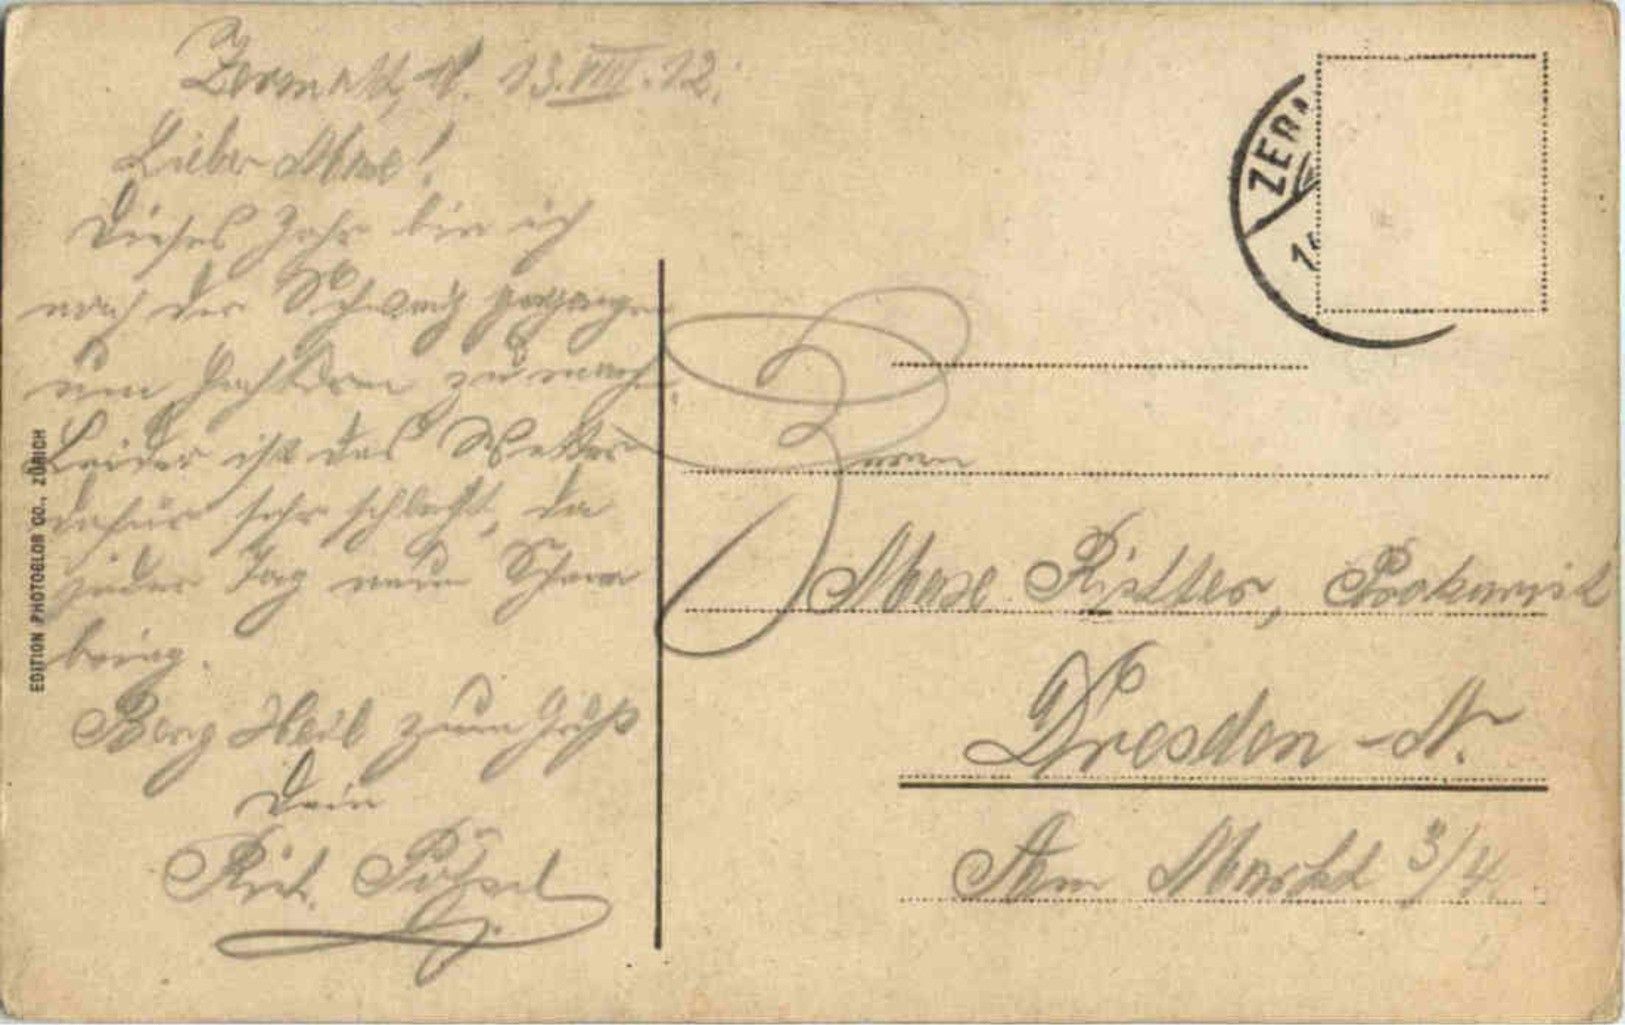 Zermatt, d. 13. VIII. 12.
Lieber Max!
Dieses Jahr bin ich
nach der Schweiz gegangen
um Hochturen zu machen.
Leider ist das Wetter
dafür sehr schlecht, da
jeder Tag neuen Schnee
bringt.
Berg Heil zum Gruß
Dein
EDITION PHOTOGLOB CO., ZÜRICH
ZERM
Herrn
Max Ritter, Prokurist
Dresden-N.
Am Markt 3/4